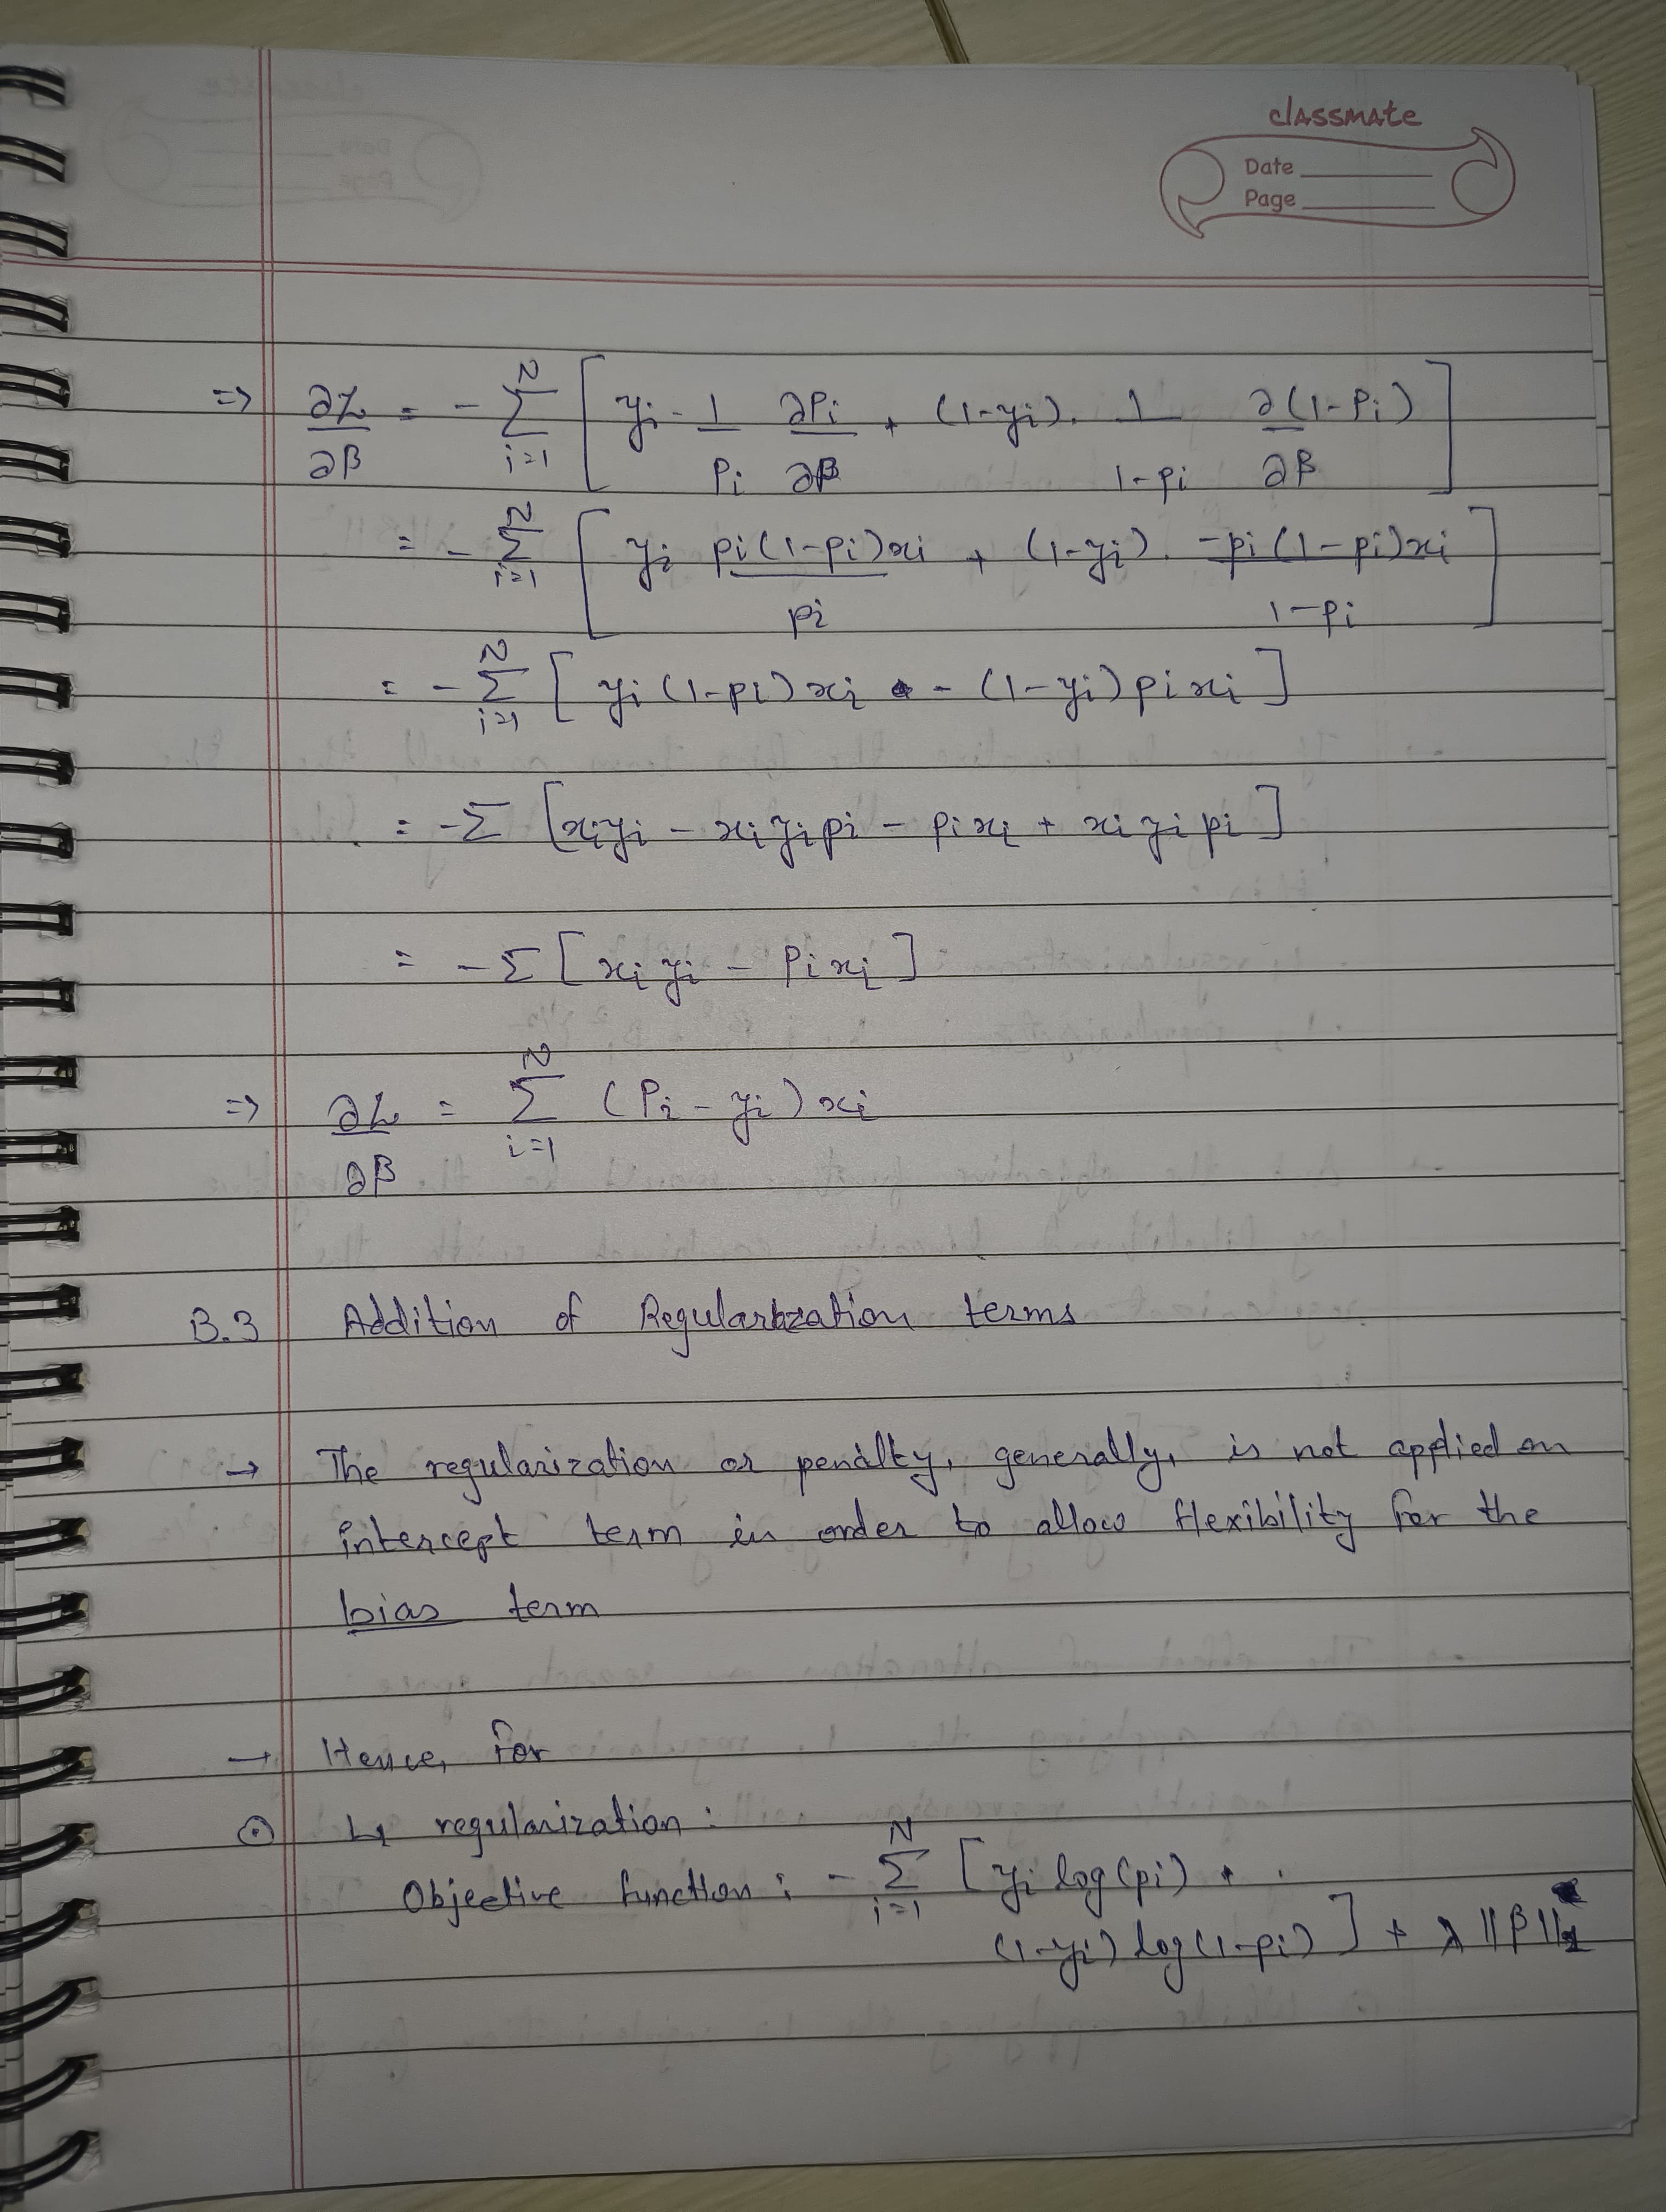 classmate
Date
Page
=> ∂L/∂β = - Σ_{i=1}^{N} [ yi · 1/Pi ∂Pi/∂β + (1-yi) · 1/(1-pi) ∂(1-Pi)/∂β ]
= - Σ_{i=1}^{N} [ yi pi(1-pi)xi/pi + (1-yi) · -pi(1-pi)xi/(1-pi) ]
= - Σ_{i=1}^{N} [ yi(1-pi)xi - (1-yi)pixi ]
= -Σ [xiyi - xiyipi - pixi + xiyipi]
= -Σ [xiyi - Pixi]
=> ∂L/∂β = Σ_{i=1}^{N} (Pi - yi)xi
B.3 Addition of Regularization terms
→ The regularization or penalty, generally, is not applied on
intercept term in order to allow flexibility for the
bias term
→ Hence, for
⊙ L1 regularization:
Objective function: - Σ_{i=1}^{N} [yi log(pi) +
(1-yi) log(1-pi)] + λ||β||1